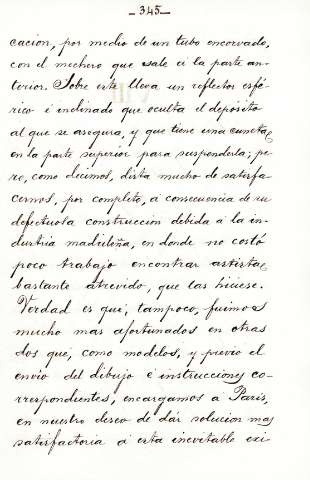 – 345 –
cacion, por medio de un tubo encorvado,
con el mechero que sale á la parte an-
terior. Sobre este lleva un reflector esfé-
rico é inclinado que oculta el depósito
al que se asegura, y que tiene una cuneta
en la parte superior para suspenderla; pe-
ro, como decimos, dista mucho de satisfa-
cernos, por completo, á consecuencia de su
defectuosa construccion debida á la in-
dustria madrileña, en donde no costó
poco trabajo encontrar artista
bastante atrevido, que las hiciese.
Verdad es que, tampoco, fuimos
mucho mas afortunados en otras
dos que, como modelos, y previo el
envio del dibujo é instrucciones co-
rrespondientes, encargamos a Paris,
en nuestro deseo de dár solucion mas
satisfactoria á esta inevitable exi-